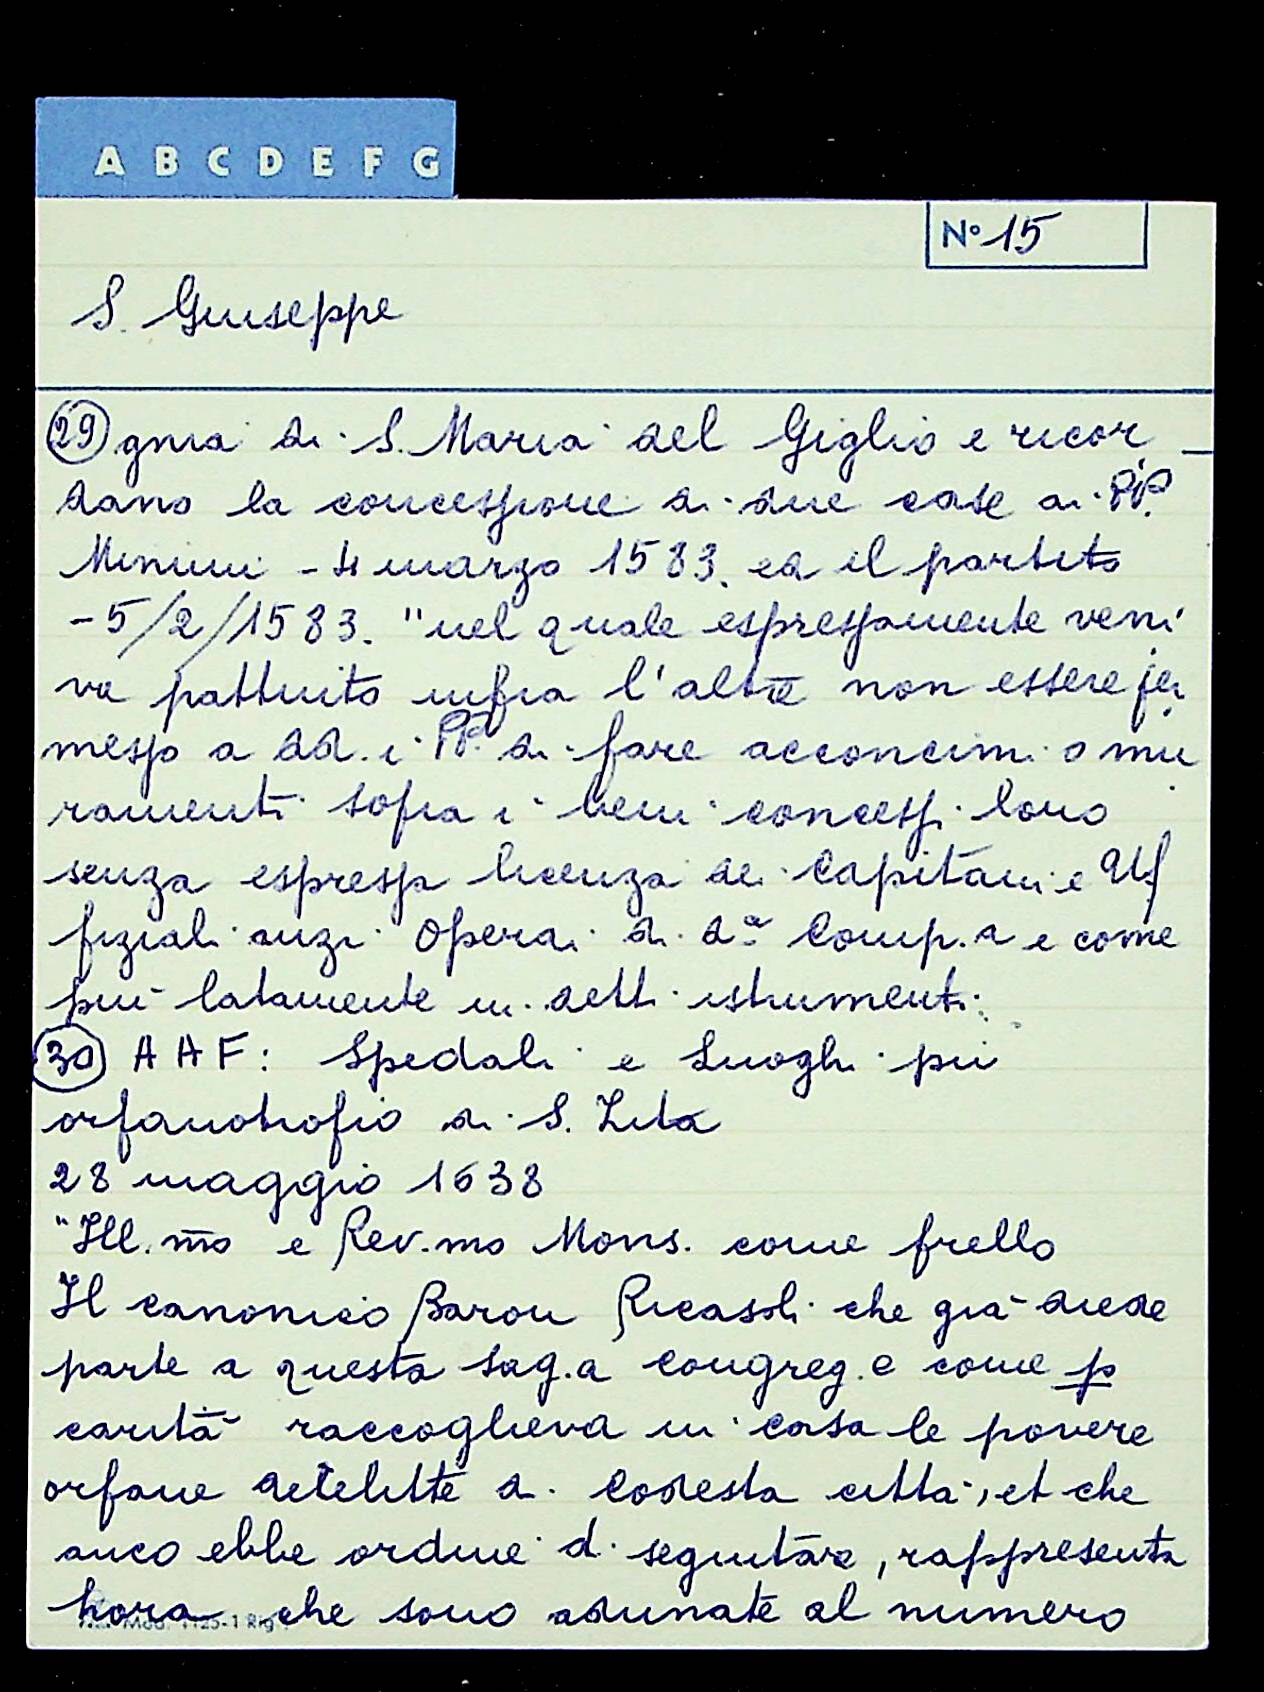 A B C D E F G
N° 15
S. Giuseppe
29 gnia di S. Maria del Giglio e ricor
dano la concessione di due case ai PP.
Minimi - 4 marzo 1583. ed il partito
- 5/2/1583. "nel quale espressamente veni
va pattuito infra l'altre non essere per
messo a dd. i PP. di fare acconcimi o mu
ramenti sopra i beni concessi loro
senza espressa licenza dei Capitani e Uf
fiziali anzi Operai di d.ª Comp.a e come
più latamente in detti istrumenti:
30 A A F: Spedali e Luoghi pii
orfanotrofio di S. Zita
28 maggio 1638
"Ill.mo e Rev.mo Mons. come frello
Il canonico Baron Ricasoli che già diede
parte a questa sag.a Congreg.e come p
carità raccoglieva in casa le povere
orfane derelitte di codesta città, et che
anco ebbe ordine di seguitare, rappresenta
hora che sono adunate al numero
Mod. 1125-1 Rig.